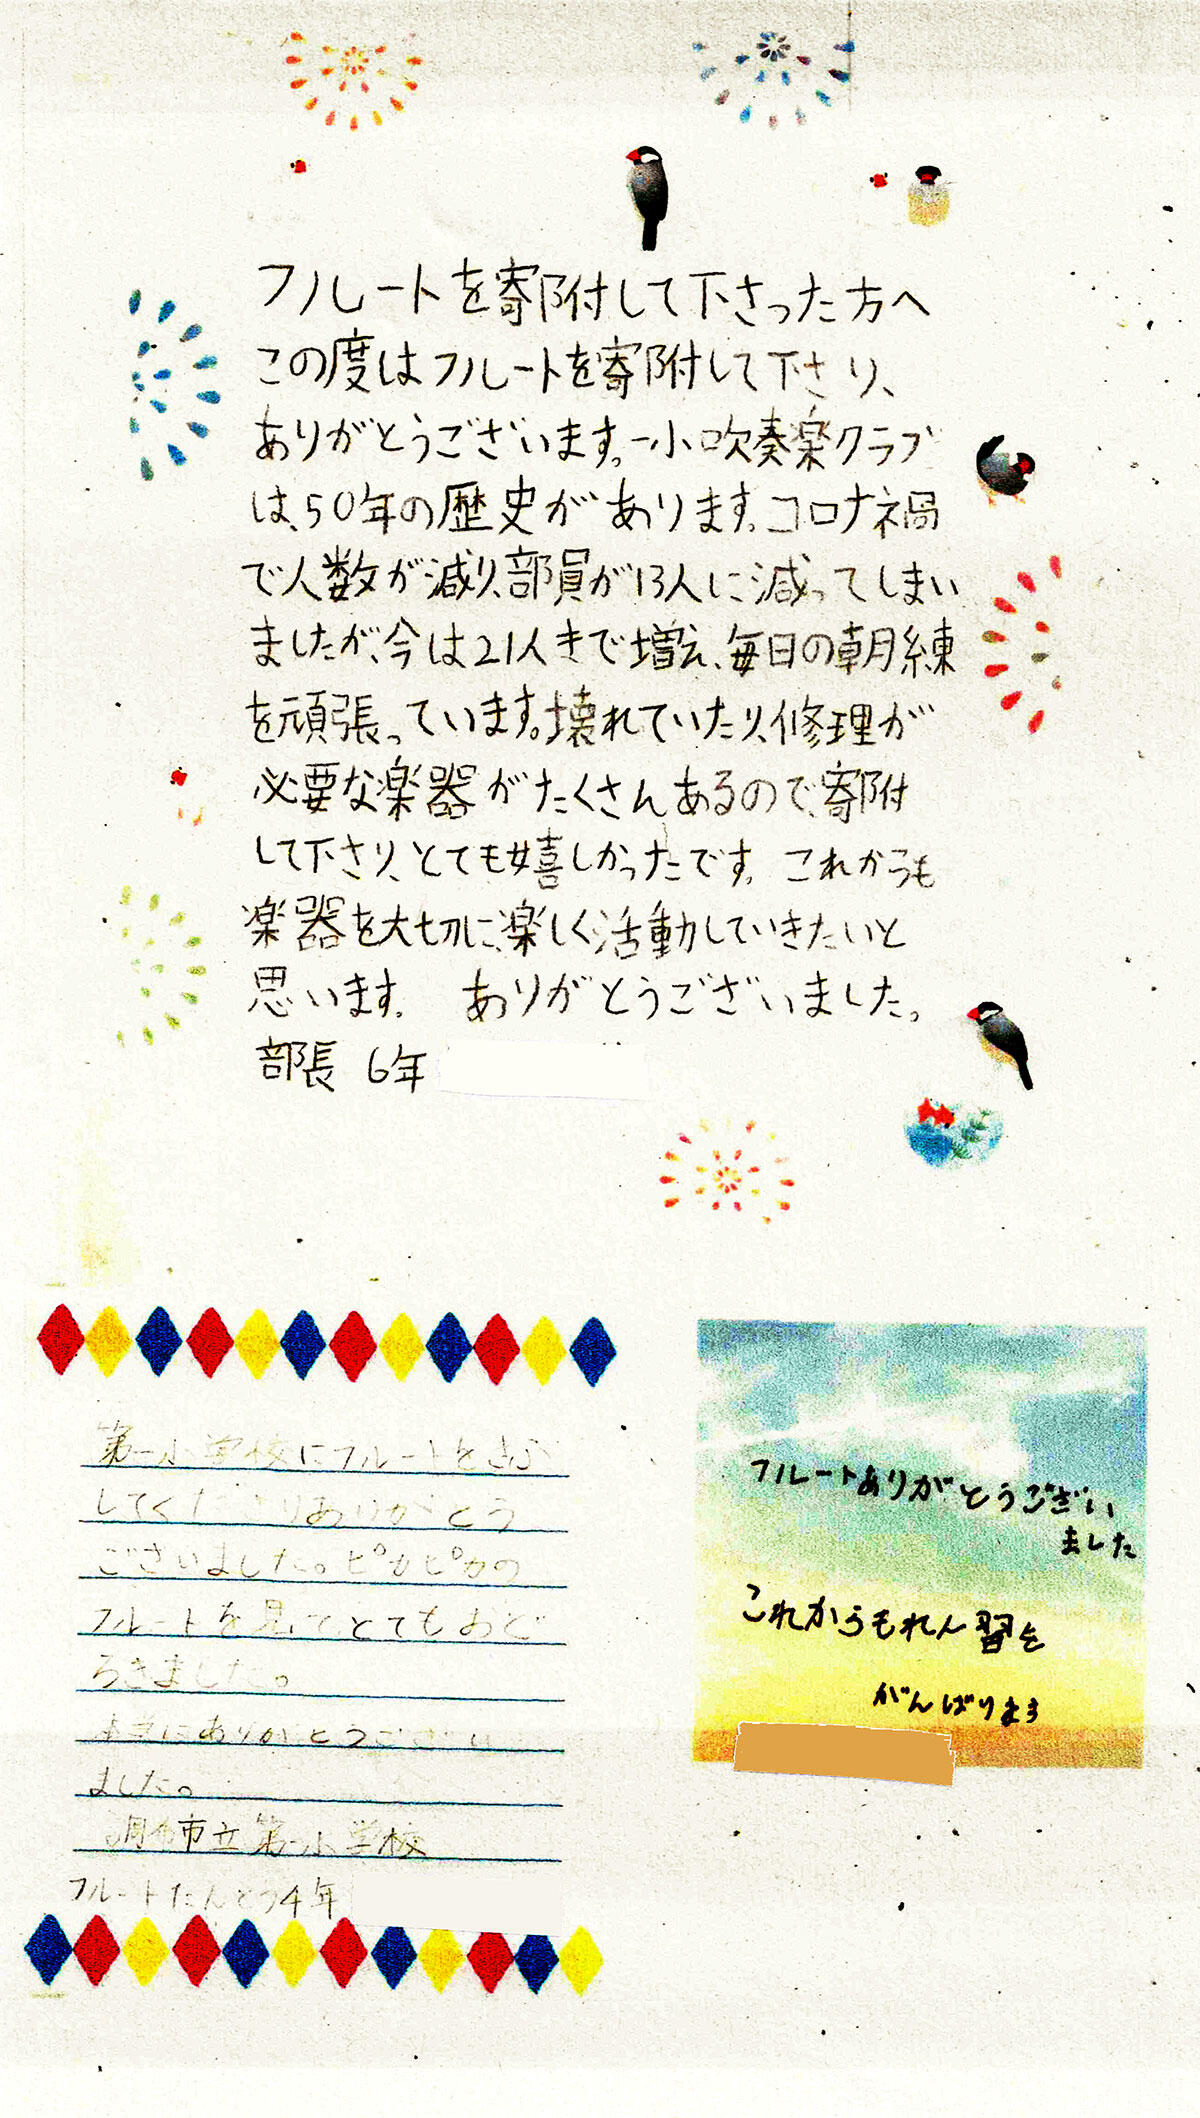 フルートを寄附して下さった方へ
この度はフルートを寄附して下さり、
ありがとうございます。一小吹奏楽クラブ
は、50年の歴史があります。コロナ禍
で人数が減り、部員が13人に減ってしまい
ましたが、今は21人まで増え、毎日の朝練
を頑張っています。壊れていたり、修理が
必要な楽器がたくさんあるので、寄附
して下さり、とても嬉しかったです。これからも
楽器を大切に、楽しく活動していきたいと
思います。 ありがとうございました。
部長 6年
第一小学校にフルートをきふ
してくださりありがとう
ございました。ピカピカの
フルートを見て、とてもおど
ろきました。
本当にありがとうござい
ました。
調布市立第一小学校
フルートたんとう4年
フルートありがとうござい
ました
これからもれん習を
がんばります